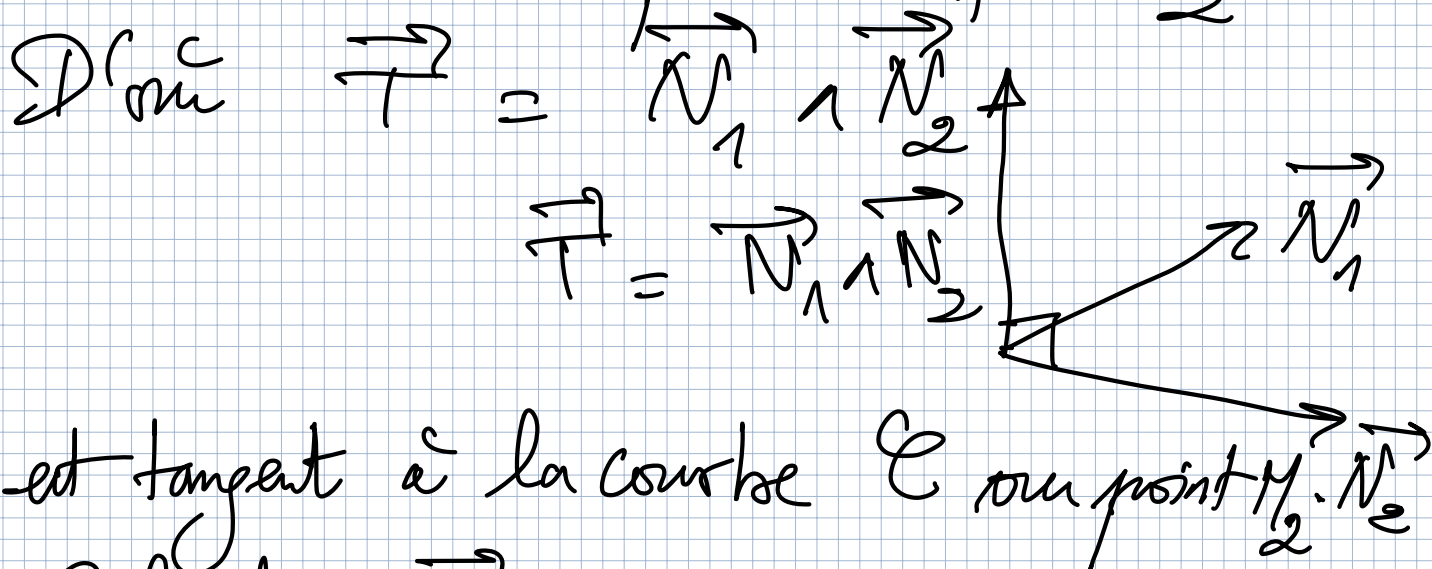 D'où $\vec{T} = \vec{N}_1 \wedge \vec{N}_2$
$\vec{T} = \vec{N}_1 \wedge \vec{N}_2$
$\vec{N}_1$
est tangent à la courbe $\mathcal{C}$ au point $M_2$.
$\vec{N}_2$